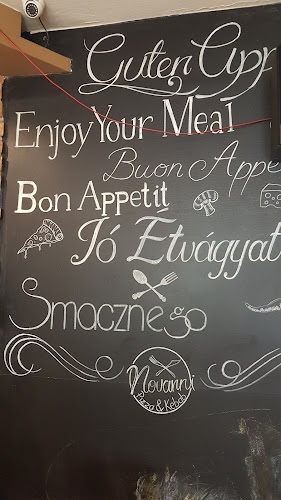 Guten App
Enjoy Your Meal
Buon Appe
Bon Appetít
Jó Étvágyat
Smacznego
Novanni
Pizza & Kebab